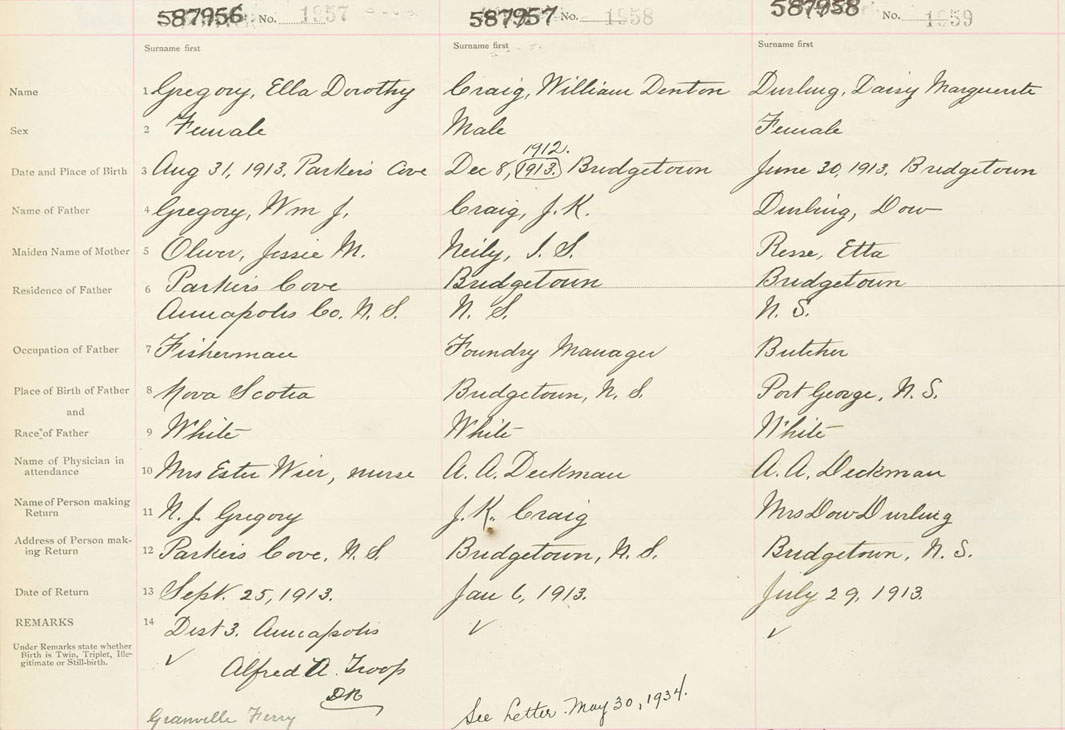 587956 No. 1957 587957 No. 1958 587958 No. 1959
Surname first Surname first Surname first
Name 1 Gregory, Ella Dorothy Craig, William Denton Durling, Daisy Marguerite
Sex 2 Female Male Female
1912.
Date and Place of Birth 3 Aug 31, 1913, Parkers Cove Dec 8, 1913, Bridgetown June 30, 1913, Bridgetown
Name of Father 4 Gregory, Wm J. Craig, J. K. Durling, Dow
Maiden Name of Mother 5 Oliver, Jessie M. Neily, I. S. Resse, Etta
Residence of Father 6 Parkers Cove Bridgetown Bridgetown
Annapolis Co. N. S. N. S. N. S.
Occupation of Father 7 Fisherman Foundry Manager Butcher
Place of Birth of Father 8 Nova Scotia Bridgetown, N. S. Port George, N. S.
and
Race of Father 9 White White White
Name of Physician in
attendance 10 Mrs Ester Weir, nurse A. A. Deckman A. A. Deckman
Name of Person making
Return 11 N. J. Gregory J. K. Craig Mrs Dow Durling
Address of Person mak-
ing Return 12 Parkers Cove, N. S. Bridgetown, N. S. Bridgetown, N. S.
Date of Return 13 Sept. 25, 1913. Jan 6, 1913. July 29, 1913.
REMARKS 14 Dist 3. Annapolis ✓ ✓
Under Remarks state whether
Birth is Twin, Triplet, Ille-
gitimate or Still-birth.
✓ Alfred A. Troop
DR
Granville Ferry See Letter May 30, 1934.